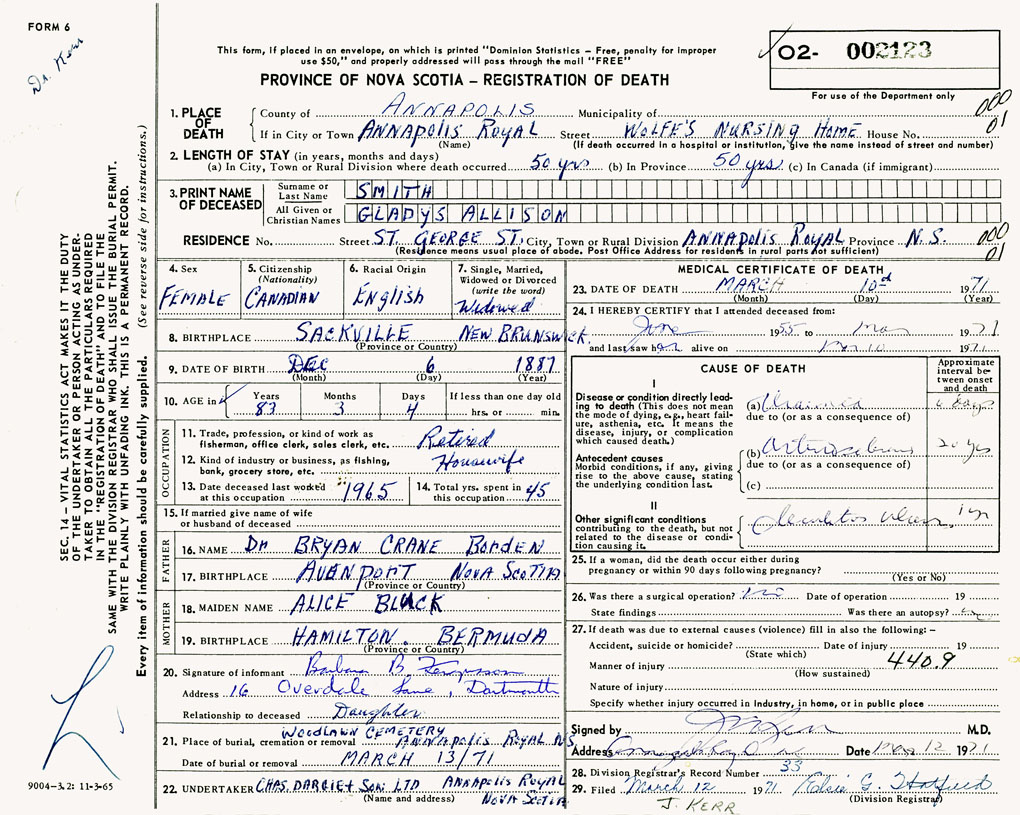 FORM 6
Dr. Kerr
This form, if placed in an envelope, on which is printed "Dominion Statistics – Free, penalty for improper
use $50," and properly addressed will pass through the mail "FREE"
PROVINCE OF NOVA SCOTIA – REGISTRATION OF DEATH
02- 002123
For use of the Department only
000
01
1. PLACE OF DEATH
County of ANNAPOLIS Municipality of
If in City or Town ANNAPOLIS ROYAL Street WOLFE'S NURSING HOME House No.
(Name) (If death occurred in a hospital or institution, give the name instead of street and number)
2. LENGTH OF STAY (in years, months and days)
(a) In City, Town or Rural Division where death occurred 50 yrs (b) In Province 50 yrs (c) In Canada (if immigrant)
3. PRINT NAME OF DECEASED
Surname or Last Name SMITH
All Given or Christian Names GLADYS ALLISON
RESIDENCE No. Street ST. GEORGE ST. City, Town or Rural Division ANNAPOLIS ROYAL Province N.S.
(Residence means usual place of abode. Post Office Address for residents in rural parts not sufficient)
000
01
4. Sex
FEMALE
5. Citizenship
(Nationality)
CANADIAN
6. Racial Origin
English
7. Single, Married,
Widowed or Divorced
(write the word)
Widowed
8. BIRTHPLACE SACKVILLE NEW BRUNSWICK.
(Province or Country)
9. DATE OF BIRTH DEC 6 1887
(Month) (Day) (Year)
10. AGE in
Years Months Days If less than one day old
83 3 4 hrs. or min.
OCCUPATION
11. Trade, profession, or kind of work as
fisherman, office clerk, sales clerk, etc. Retired
12. Kind of industry or business, as fishing,
bank, grocery store, etc. Housewife
13. Date deceased last worked
at this occupation 1965
14. Total yrs. spent in
this occupation 45
15. If married give name of wife
or husband of deceased
FATHER
16. NAME Dr BRYAN CRANE BORDEN
17. BIRTHPLACE AVENPORT NOVA SCOTIA
(Province or Country)
MOTHER
18. MAIDEN NAME ALICE BLACK
19. BIRTHPLACE HAMILTON. BERMUDA
(Province or Country)
20. Signature of informant Barbara B. Fergusson
Address 16 Overdale Lane, Dartmouth
Relationship to deceased Daughter
WOODLAWN CEMETERY
21. Place of burial, cremation or removal ANNAPOLIS ROYAL N.S.
Date of burial or removal MARCH 13/71
22. UNDERTAKER CHAS. DARGIE & SON LTD ANNAPOLIS ROYAL
(Name and address) NOVA SCOTIA
MEDICAL CERTIFICATE OF DEATH
23. DATE OF DEATH MARCH 10 1971
(Month) (Day) (Year)
24. I HEREBY CERTIFY that I attended deceased from:
June 1955 to Mar 1971
and last saw her alive on Mar 10 1971
CAUSE OF DEATH
Approximate
interval be-
tween onset
and death
I
Disease or condition directly lead-
ing to death (This does not mean
the mode of dying, e.g., heart fail-
ure, asthenia, etc. It means the
disease, injury, or complication
which caused death.)
(a) days
due to (or as a consequence of)
Antecedent causes
Morbid conditions, if any, giving
rise to the above cause, stating
the underlying condition last.
(b) 20 yrs
due to (or as a consequence of)
(c)
II
Other significant conditions
contributing to the death, but not
related to the disease or condi-
tion causing it.
25. If a woman, did the death occur either during
pregnancy or within 90 days following pregnancy?
(Yes or No)
26. Was there a surgical operation? Date of operation 19
State findings Was there an autopsy?
27. If death was due to external causes (violence) fill in also the following: –
Accident, suicide or homicide? Date of injury 19
(State which)
440.9
Manner of injury
(How sustained)
Nature of injury
Specify whether injury occurred in industry, in home, or in public place
Signed by M.D.
Address Annapolis Royal Date Mar 12 1971
28. Division Registrar's Record Number 33
29. Filed March 12 1971 Elsie G. Hatfield
(Division Registrar)
J. KERR
SEC. 14 – VITAL STATISTICS ACT MAKES IT THE DUTY
OF THE UNDERTAKER OR PERSON ACTING AS UNDER-
TAKER TO OBTAIN ALL THE PARTICULARS REQUIRED
IN THE "REGISTRATION OF DEATH" AND TO FILE THE
SAME WITH THE DIVISION REGISTRAR WHO SHALL ISSUE THE BURIAL PERMIT.
WRITE PLAINLY WITH UNFADING INK. THIS IS A PERMANENT RECORD.
Every item of information should be carefully supplied. (See reverse side for instructions.)
9004-3.2: 11-3-65